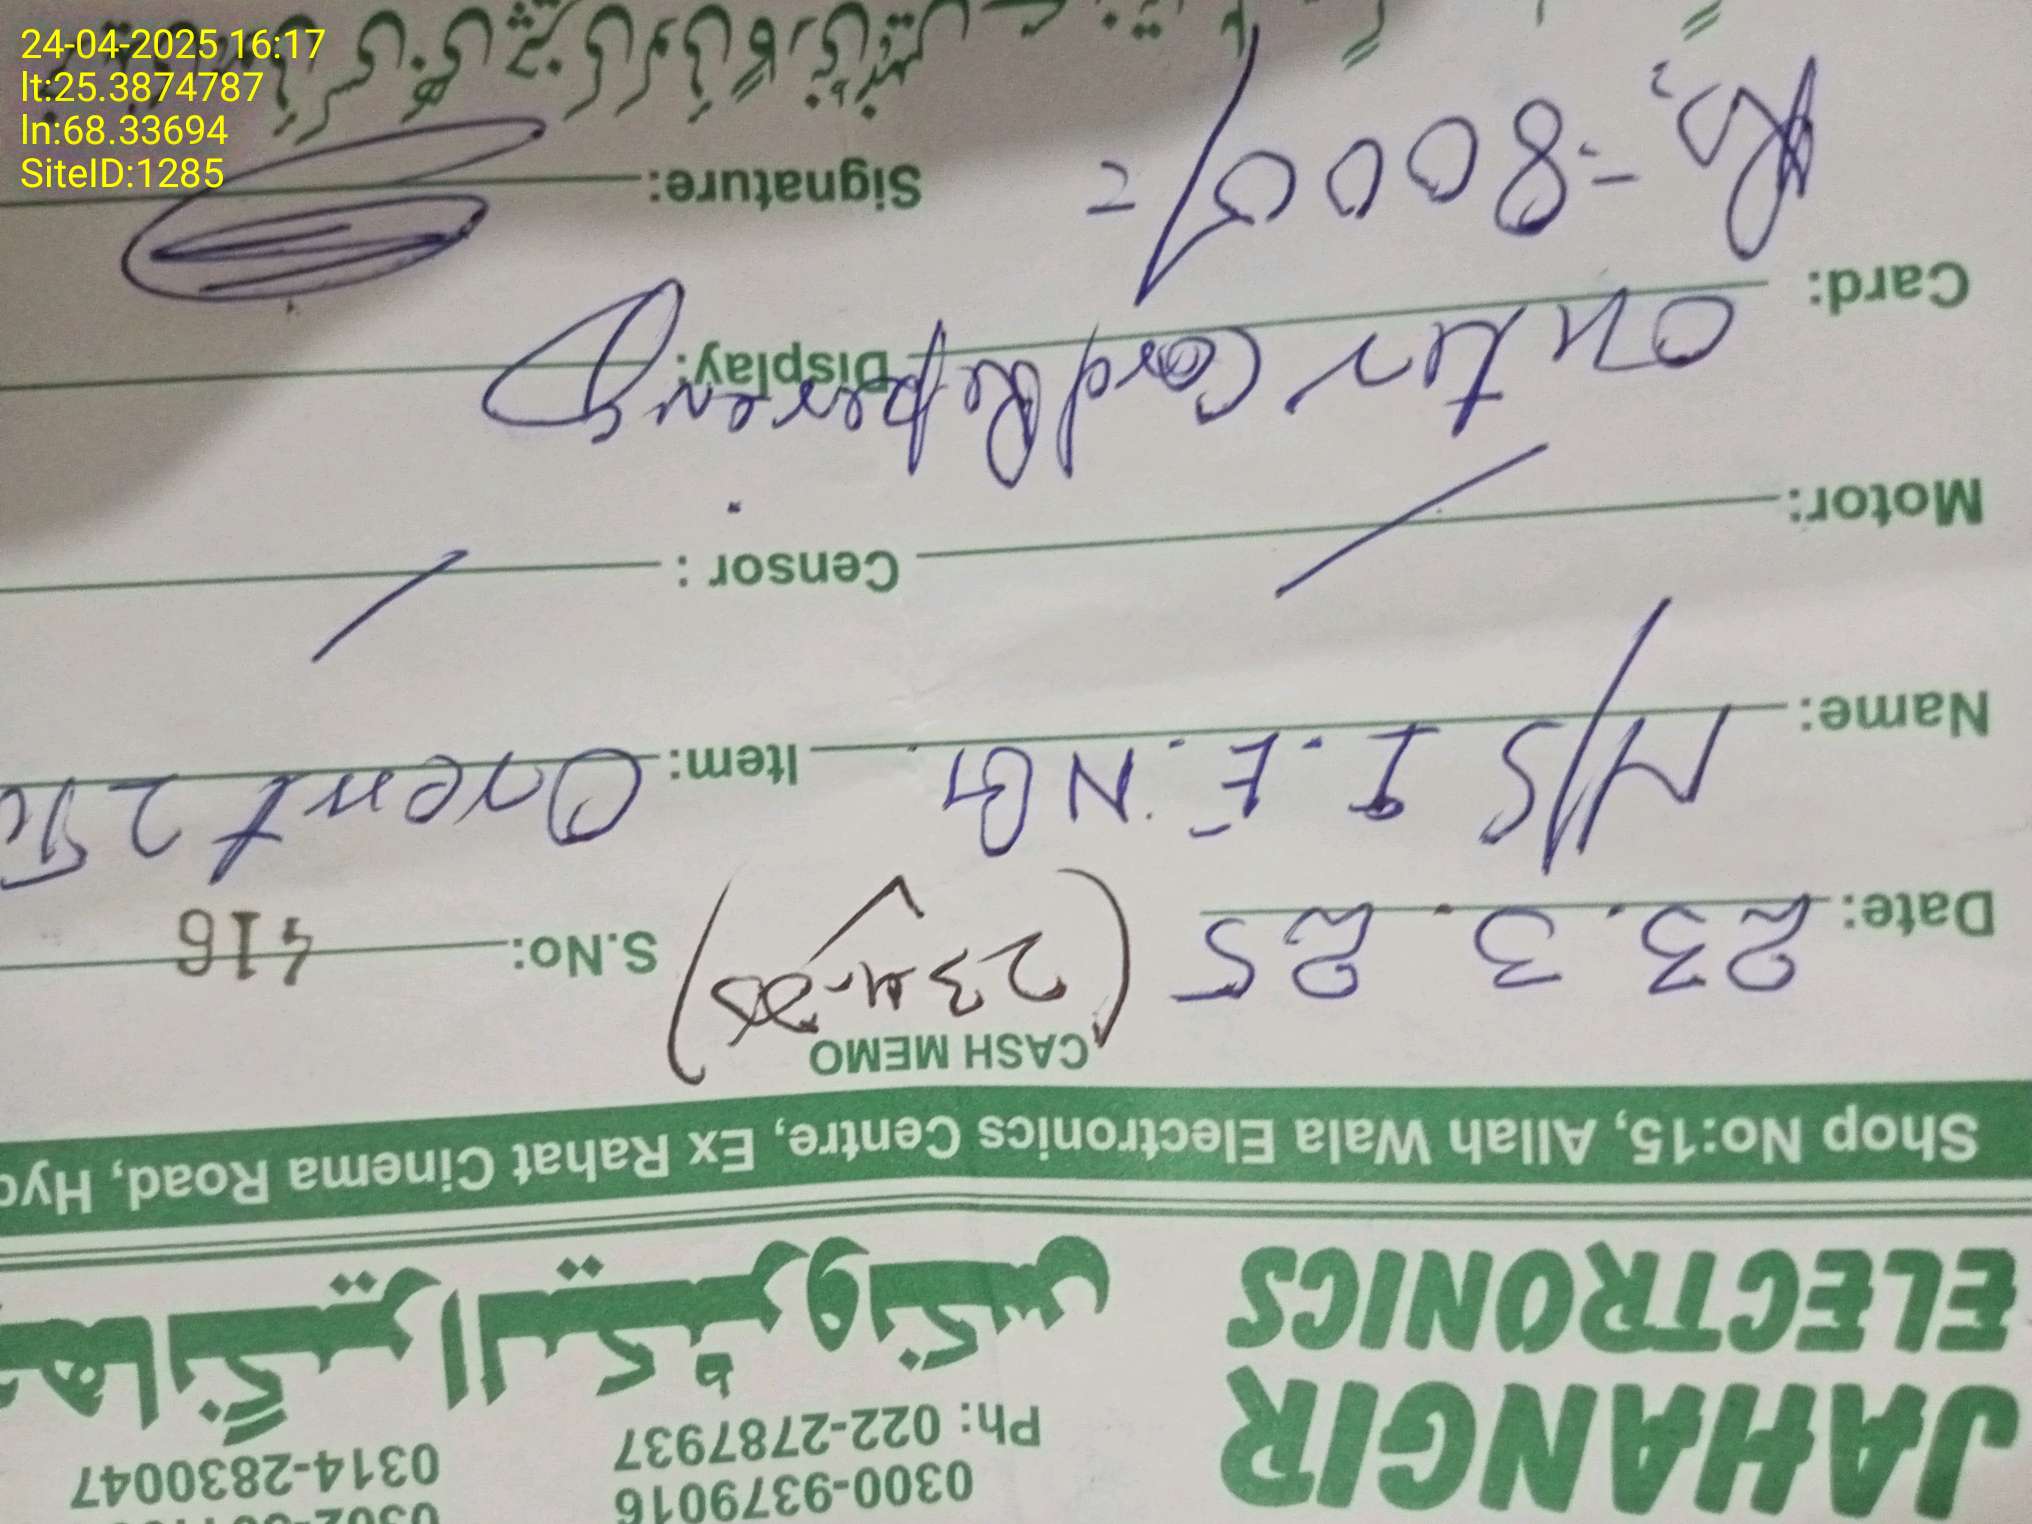 24-04-2025 16:17
lt:25.3874787
ln:68.33694
SiteID:1285
0300-9379016
JAHANGIR Ph: 022-2787937 0314-2830047
ELECTRONICS جهانگیر الیکٹرونکس
Shop No:15, Allah Wala Electronics Centre, Ex Rahat Cinema Road, Hyd
CASH MEMO
Date: 23.3.25 (23-4-25) S.No: 416
Name: M/S I.E.NG Item: Orient 2
Motor: Censor :
Card: Outer Card Display:
Rs. =8000/= Signature: